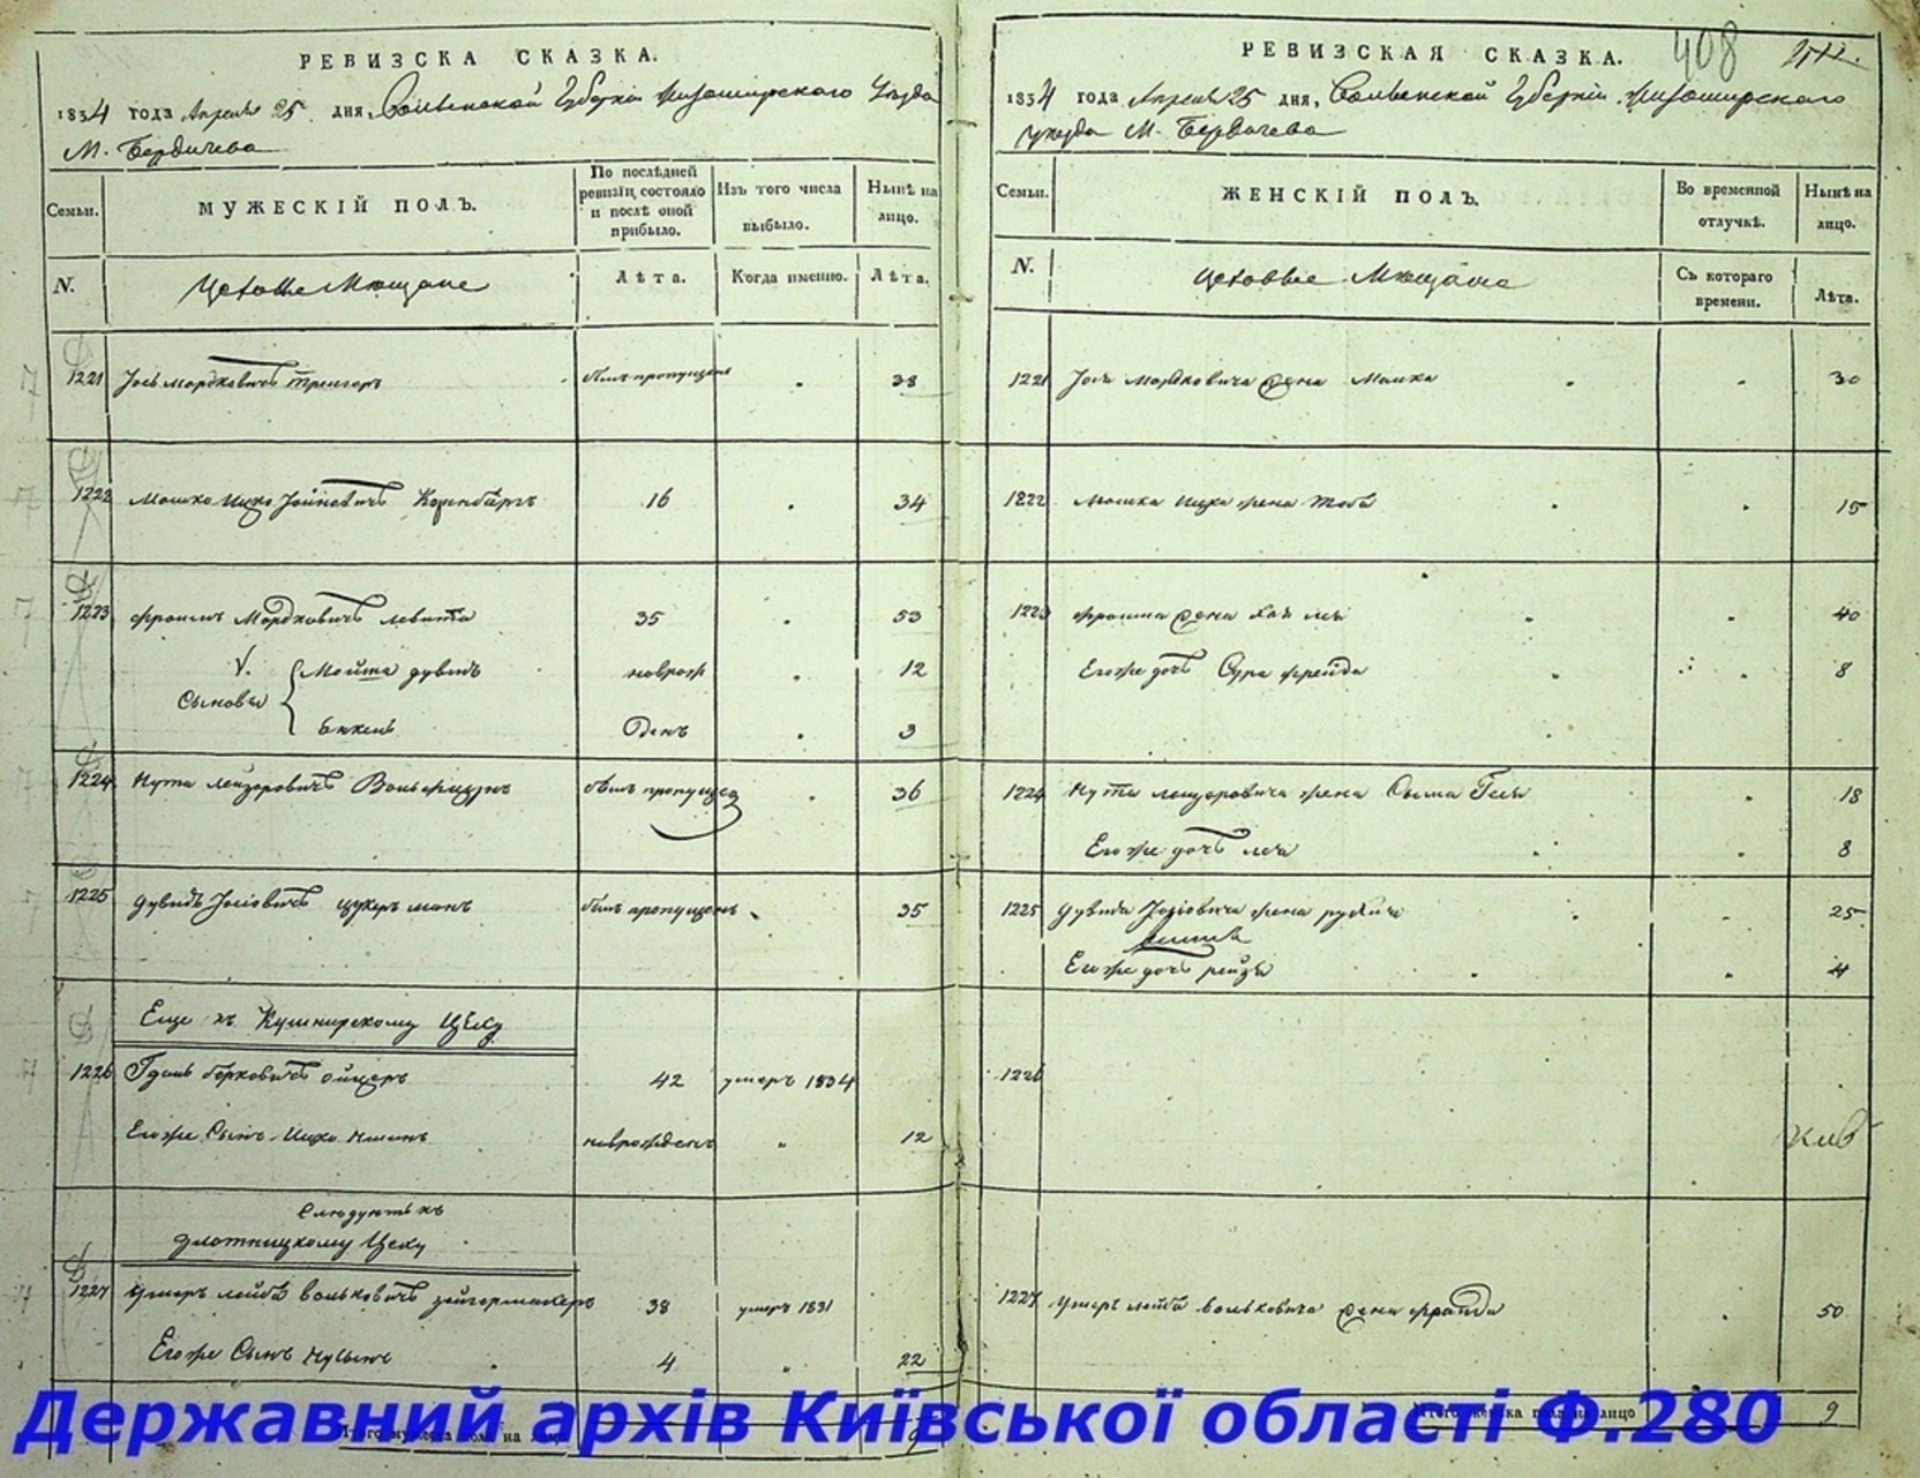 РЕВИЗСКА СКАЗКА.
1834 года Апреля 25 дня, Волынской Губернiи Житомирского Уезда
М. Бердичева
Семьи.
МУЖЕСКІЙ ПОЛЪ.
По послѣдней ревизіи состояло и послѣ оной прибыло.
Изъ того числа выбыло.
Нынѣ на лицо.
N.
Цеховые Мещане
Лѣта.
Когда именно.
Лѣта.
1221 Іось Мордковичъ былъ пропущенъ 38
1222 Мошко Ицко 16 34
1223 Фроимъ Мордковичъ Левита 35 53
Сыновья
Дувидъ новрож 12
3
1224 Нута Лейзоровичъ былъ пропущен 36
1225 Дувидъ Іосіовичъ Цукерманъ былъ пропущенъ 35
Еще къ Кушнирскому Цеху
1226 Берковичъ 42 умеръ 1834
Егоже Сынъ Ицко новрожденъ 12
Следуютъ къ
плотницкому Цеху
1227 Умеръ Лейба Вольковичъ Зейгермахеръ 38 умеръ 1831
Егоже Сынъ 4 22
Итого мужеска пола на лицо 9
РЕВИЗСКАЯ СКАЗКА.
408
1834 года Апреля 25 дня, Волынской Губернiи Житомирского
уезда М. Бердичева
Семьи.
ЖЕНСКІЙ ПОЛЪ.
Во временной отлучкѣ.
Нынѣ на лицо.
N.
Цеховые Мещане
Съ котораго времени.
Лѣта.
1221 Іося Мордковича жена Малка 30
1222 Мошка Ицка жена Тоба 15
1223 Фроима жена Хая Лея 40
Егоже дочь Сура Фрейда 8
1224 Нута Лейзоровича жена 18
Егоже дочь Лея 8
1225 Дувида Іосіовича жена 25
Егоже дочь Рейзя 4
1226
1227 Умеръ Лейба Вольковича жена Фрайда 50
Итого женска пола на лицо 9
Державний архів Київської області Ф.280